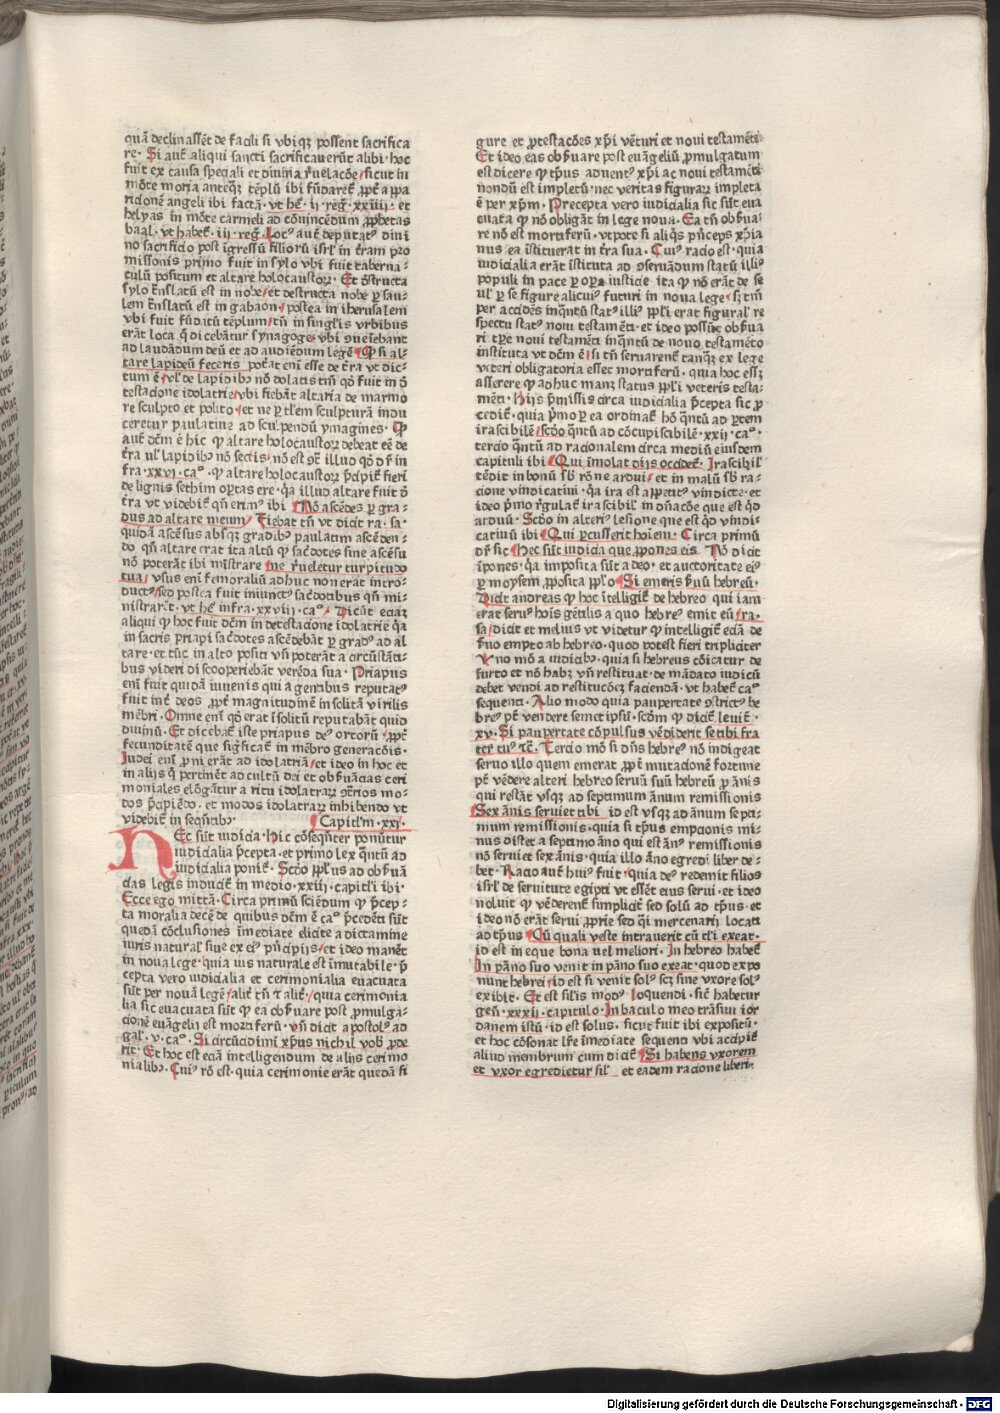 quā declinassēt de facili si vbiqꝫ possent sacrifica
re· Si autē aliqui sancti sacrificauerūt alibi· hoc
fuit ex causa speciali et diuina r̄uelacōe/sicut in
mōte moria anteqꝫ tēplū ibi fūdaret̄ ꝓpt̄ appa
ricionē angeli ibi factā· vt hēt̄· ij· reḡ· xxiiij· et
helyas in mōte carmeli ad cōuincēdum ꝓphetas
baal· vt habet̄· iij· reḡ· Locꝰ autē deputatꝰ diui
no sacrificio post īgressū filiorū isrl̄ in t̄ram pro
missonis primo fuit in sylo vbi fuit taberna⸗
culū positum et altare holocaustoꝝ· Et dstructa
sylo t̄nslatū est in nobe/et destructa nobe ꝑ sau⸗
lem t̄nslatū est in gabaon/postea in iherusalem
vbi fuit fūdatū tēplum/tn̄ in singl̄is vrbibus
erāt loca q̄ dicebātur synagoge vbi ꝯueīebant
ad laudādum deū et ad audiēdum legē Qꝫ si al⸗
tare lapideū feceris pot̄at enī esse de t̄ra vt dic⸗
tum ē/vl̄ de lapidibꝰ nō dolatis tn̄ qd̄ fuit in d̄
testacōne idolatrie/vbi fiebāt altaria de marmo
re sculpto et polito/et ne ꝑ tl̄em sculpturā indu
ceretur paulatiue ad sculpendū ymagines· Qꝫ
autē dc̄m ē hic qꝫ altare holocaustoꝝ debeat eē de
t̄ra ul̄ lapidibꝰ nō sectis/nō est ꝯt̄ illud qd̄ dr̄ in
fra· xxvij· caº· qꝫ altare holocaustoꝝ p̄cipit̄ fieri
de lignis sethim
t̄ra vt videbit̄ qn̄ erimꝰ ibi Nō ascēdes ꝑ gra⸗
dus ad altare meum/ Fiebat tn̄ vt dicit ra· sa·
quidā ascēsus absqꝫ gradibꝰ paulatim ascēden⸗
do qn̄ altare erat ita altū qꝫ sac̄dotes sine ascēsu
nō poterāt ibi mīstrare/ne r̄ueletur turpitudo
tua/ vsus enī femoraliū adhuc non erat intro⸗
ductꝰ/sed postea fuit iniunctꝰ sac̄dotibus qn̄ mi⸗
nistrarēt· vt hēt̄ infra· xxviij· caº· Dicūt eciaꝫ
aliqui qꝫ hoc fuit dc̄m in detestacione idolatrie q̄a
in sacris priapi sac̄dotes ascēdebāt ꝑ gradꝰ ad al
tare· et tūc in alto positi vn̄ poterāt a circūstāti⸗
bus videri discooperiebāt verēda sua· Priapus
enī fuit quidā iuuenis qui a gentibus reputatꝰ
fuit int̄ deos ꝓpt̄ magnitudinē insolitā virilis
mēbri· Omne enī qd̄ erat īsolitū reputabāt quid
diuinū· Et dicebāt iste priapus deꝰ ortorū ꝓpt̄
fecunditatē que siḡficat̄ in mēbro generacōis·
Iudei enī ꝓni erāt ad idolatriā/et ideo in hoc et
in alijs q̄ pertinēt ad cultū dei et obẜuācias ceri
moniales elōgātur a ritu idolatraꝝ ꝯt̄rios mo⸗
dos p̄cipiēdo· et modos idolatraꝝ inhibendo vt
videbit̄ in seqn̄tibꝰ· Capitl̄m· xxj·
HEc sūt iudicia· Hic cōseqn̄ter ponūtur
iudicialia p̄cepta· et primo lex qn̄tū ad
iudicialia ponit̄· Scd̄o ppl̄us ad obẜuā
cias legis inducit̄ in medio· xxiij· capitl̄i ibi·
Ecce ego mittā· Circa primū sciēdum qꝫ p̄cep⸗
ta moralia decē de quibus dc̄m ē caº p̄cedēti sūt
quedā cōclusiones īmediate elicite a dictamine
iuris natural̄ siue ex eiꝰ pn̄cipijs/et ideo manēt
in noua lege· quia ius naturale est īmutabile· p̄
cepta vero iudicialia et cerimonialia euacuata
sūt per nouā legē/alit̄ tn̄ ⁊ alit̄/quia cerimonia
lia sic euacuata sūt qꝫ ea obẜuare post ꝓmulga⸗
cionē euāgelij est mortiferū· vn̄ dicit apostolꝰ ad
gal̄· v· caº· Si circūcidimī xp̄us nichil vob̄ ꝓde
rit· Et hoc est eciā intelligendum de alijs cerimo
nialibꝰ· Cuiꝰ rō est· quia cerimonie erāt quedā fi
gure et ꝓtestacōes xp̄i vētuti et noui testamēti
Et ideo eas obẜuare post euāgeliū ꝓmulgatum
est dicere qꝫ tp̄us aduentꝰ xp̄i ac noui testamēti
nondū est impletū· nec veritas figuraꝝ impleta
ē per xp̄m· Precepta vero iudicialia sic sūt eua
cuata qꝫ nō obligāt in lege noua· Ea tn̄ obẜua⸗
re nō est mortiferū· vtpote si aliqs pn̄ceps xp̄ia
nus ea īstituerat in t̄ra sua· Cuiꝰ racio est· quia
iudicialia erāt īstituta ad ꝯseruādum statū illiꝰ
populi in pace ꝑ opa iusticie ita qꝫ nō erāt de se
ul̄ ꝑ se figure alicuiꝰ futuri in noua lege· sꝫ tn̄
per accidēs inqn̄tū statꝰ illiꝰ ppl̄i erat figural̄ re
spectu statꝰ noui testamēti· et ideo possūt obẜua
ri tp̄e noui testamēti inqn̄tū de nouo testamēto
instituta vt dc̄m ē/si tn̄ seruarent̄ tanqꝫ ex lege
veteri obligatoria esset mortiferū· quia hoc esset
asserere qꝫ adhuc manꝫ status ppl̄i veteris testa⸗
mēti· Hijs p̄missis circa iudicialia p̄cepta sic ꝓ
cedit̄· quia pͥmo ꝑ ea ordinat̄ hō qn̄tū ad ꝑtem
irascibilē/scd̄o qn̄tū ad cōcupiscibilē· xxij· caº·
tercio qn̄tū ad racionalem circa mediū eiusdem
capituli ibi Qui īmolat dijs occidet̄· Irascibil̄
tēdit in bonū sb̄ rōne ardui/et in malū sb̄ ra⸗
cione vindicatiui· q̄a ira est appetitꝰ vindicte· et
ideo pͥmo r̄gulat̄ irascibil̄ in dn̄acōe que est qd̄
arduū· Scd̄o in alteriꝰ lesione que est qd̄ vindi⸗
catiuū ibi Qui ꝑcusserit hoīem· Circa primū
dr̄ sic Hec sūt iudicia que ꝓpones eis Nō dicit
īpones· q̄a imposita sūt a deo· et auctoritate eiꝰ
ꝑ moysem ꝓposita ppl̄o Si emeris ẜuū hebreū·
Dicit andreas qꝫ hoc ītelligit̄ de hebreo qui iam
erat seruꝰ hoīs gētilis a quo hebreꝰ emit eū/ra·
sa/dicit et melius vt videtur qꝫ intelligit̄ eciā de
ẜuo empto ab hebreo· quod potest fieri tripliciter
Vno mō a iudicibꝰ· quia si hebreus cōuicatur de
furto et nō habꝫ vn̄ restituat· de mādato iudicū
debet vendi ad restitucōeꝫ faciendā· vt habet̄ caº
sequenti· Alio modo quia paupertate ꝯstrictꝰ he
breꝰ pt̄ vendere semetipsū· scd̄m qꝫ dicit̄ leuit̄·
xv· Si paupertate cōpulsus vēdiderit se tibi fra
ter tuꝰ ⁊c̄· Tercio mō si dn̄s hebreꝰ nō indigeat
seruo illo quem emerat ꝓpt̄ mutacionē fortune
pt̄ vēdere alteri hebreo seruū suū hebreū ꝑ ānis
qui restāt vsqꝫ ad septimum ānum remissionis
Sex ānis seruiet tibi id est vsqꝫ ad ānum septi⸗
mum remissionis· quia si tp̄us empcionis mi⸗
nus distet a septimo āno qui est ānꝰ remissionis
nō seruiet sex ānis· quia illo āno egredi liber de⸗
bet· Racio autē huiꝰ fuit· quia deꝰ redemit filios
isrl̄ de seruitute egipti vt essēt eius serui· et ideo
noluit qꝫ vēderent̄ simplicit̄ sed solū ad tp̄us· et
ideo nō erāt serui ꝓprie sed q̄i mercenarij locati
ad tp̄us Cū quali veste intrauerit cū tl̄i exeat·
id est in eque bona uel meliori· In hebreo habet̄
In pāno suo venit in pāno suo exeat· quod expo
nunt hebrei/id est si venit solꝰ scꝫ sine vxore solꝰ
exibit· Et est sil̄is modꝰ loquendi· sic̄ habetur
gen̄· xxxij· capitulo· In baculo meo trāsiui ior
danem istū· id est solus· sicut fuit ibi expositū·
et hoc cōsonat lr̄e īmediate sequenti vbi accipit̄
aliud membrum cum dicit̄ Si habens vxorem
et vxor egredietur sil̄ et eadem racione liberi·
Digitalisierung gefördert durch die Deutsche Forschungsgemeinschaft · DFG